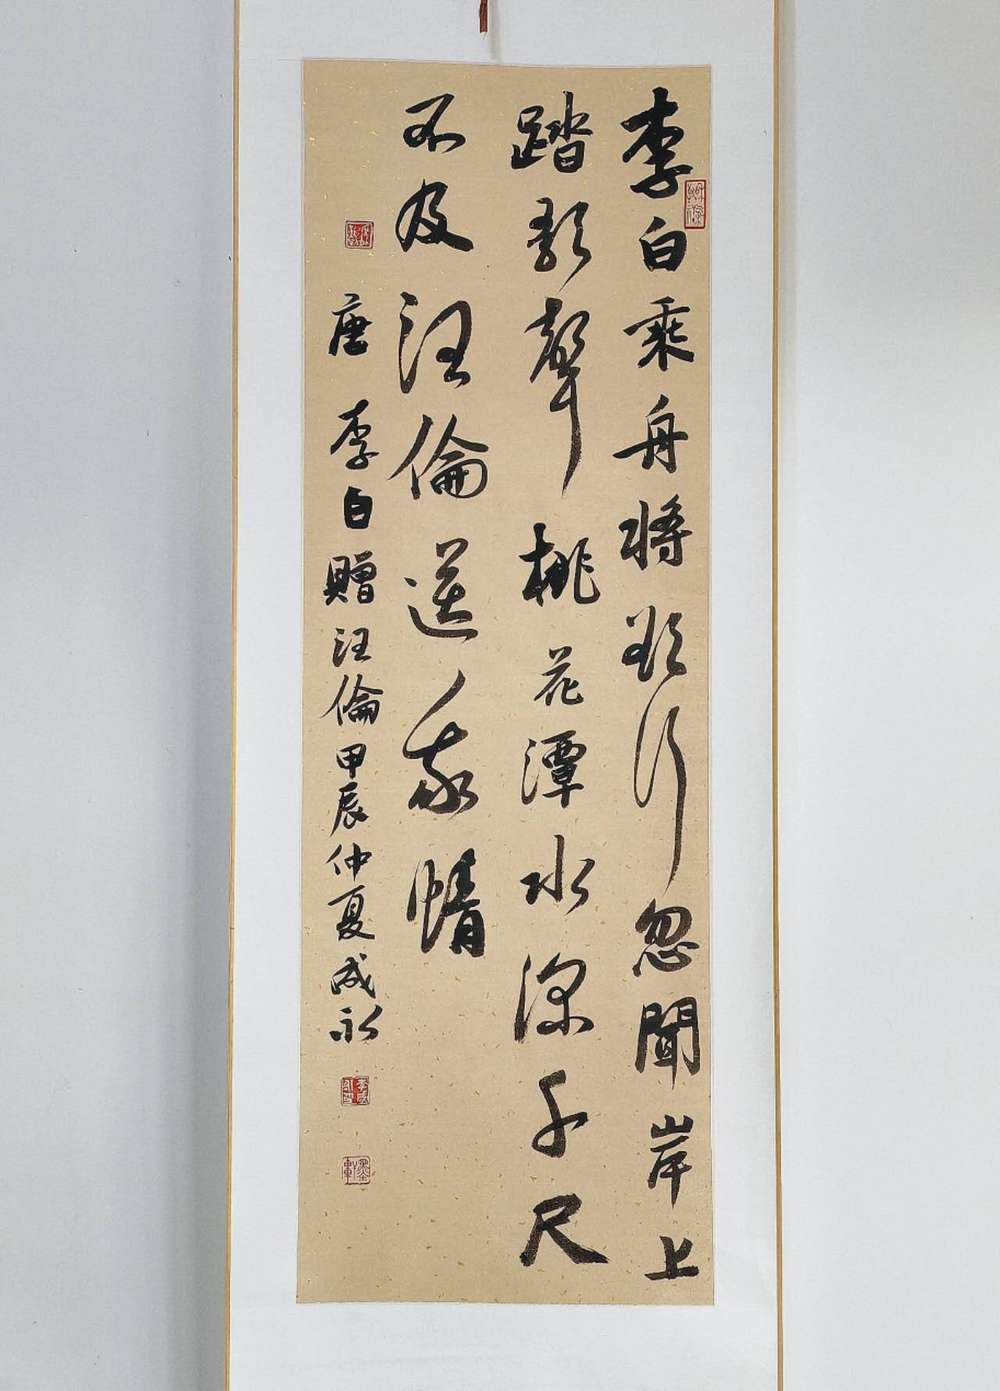 李白乘舟将欲行忽聞岸上
踏歌聲桃花潭水深千尺
不及汪倫送我情
唐李白贈汪倫甲辰仲夏成永